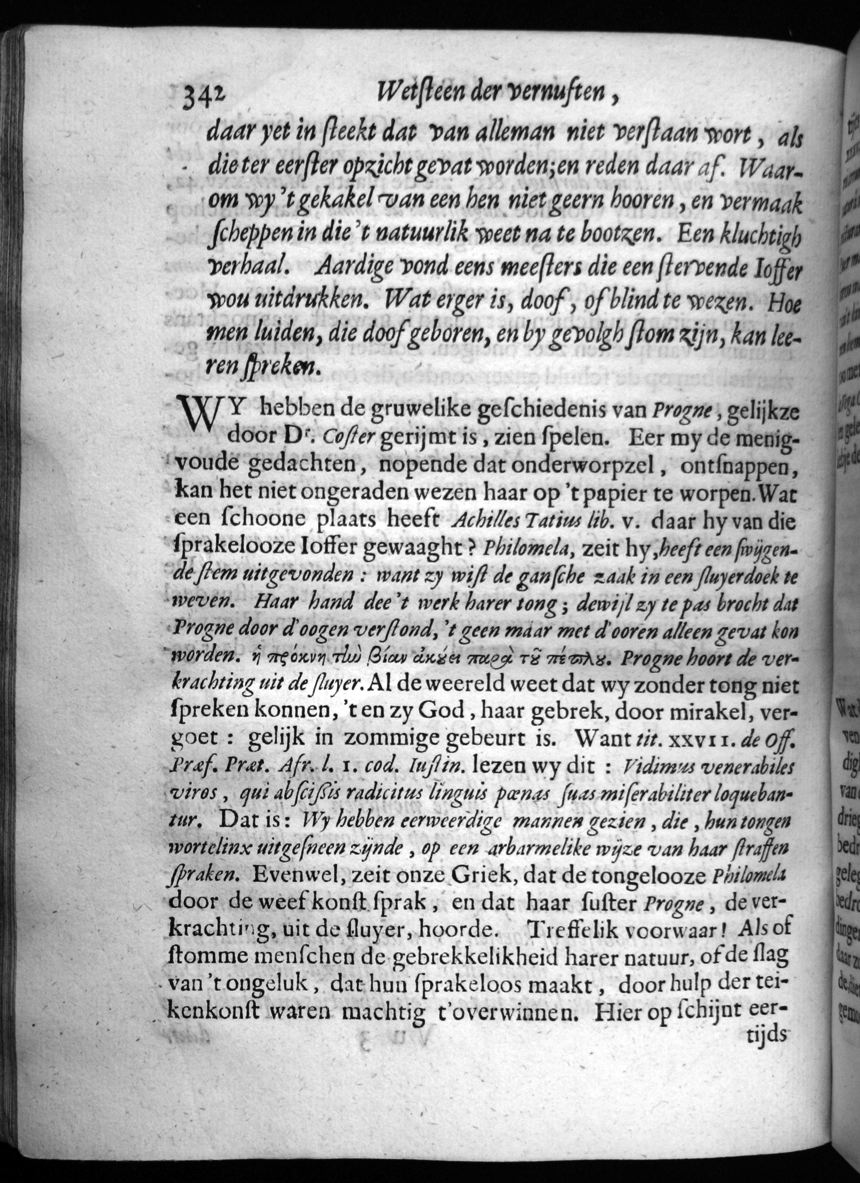 342 Wetſteen der vernuften,
daar yet in ſteekt dat van alleman niet verſtaan wort, als
die ter eerſter opzicht gevat worden; en reden daar af. Waar-
om wy 't gekakel van een hen niet geern hooren, en vermaak
ſcheppen in die 't natuurlik weet na te bootzen. Een kluchtigh
verhaal. Aardige vond eens meeſters die een ſtervende Ioffer
wou uitdrukken. Wat erger is, doof, of blind te wezen. Hoe
men luiden, die doof geboren, en by gevolgh ſtom zijn, kan lee-
ren ſpreken.
WY hebben de gruwelike geſchiedenis van Progne, gelijkze
door Dr. Coſter gerijmt is, zien ſpelen. Eer my de menig-
voude gedachten, nopende dat onderworpzel, ontſnappen,
kan het niet ongeraden wezen haar op 't papier te worpen. Wat
een ſchoone plaats heeft Achilles Tatius lib. v. daar hy van die
ſprakelooze Ioffer gewaaght? Philomela, zeit hy, heeft een ſwijgen-
de ſtem uitgevonden: want zy wiſt de ganſche zaak in een ſluyerdoek te
weven. Haar hand dee 't werk harer tong; dewijl zy te pas brocht dat
Progne door d'oogen verſtond, 't geen maar met d'ooren alleen gevat kon
worden. ἡ πρόκνη τὴν βίαν ἀκούει παρὰ τοῦ πέπλου. Progne hoort de ver-
krachting uit de ſluyer. Al de weereld weet dat wy zonder tong niet
ſpreken konnen, 't en zy God, haar gebrek, door mirakel, ver-
goet: gelijk in zommige gebeurt is. Want tit. XXVII. de Off.
Præf. Præt. Afr. l. 1. cod. Iuſtin. lezen wy dit: Vidimus venerabiles
viros, qui abſciſſis radicitus linguis pœnas ſuas miſerabiliter loqueban-
tur. Dat is: Wy hebben eerweerdige mannen gezien, die, hun tongen
wortelinx uitgeſneen zijnde, op een arbarmelike wijze van haar ſtraffen
ſpraken. Evenwel, zeit onze Griek, dat de tongelooze Philomela
door de weefkonſt ſprak, en dat haar ſuſter Progne, de ver-
krachting, uit de ſluyer, hoorde. Treffelik voorwaar! Als of
ſtomme menſchen de gebrekkelikheid harer natuur, of de ſlag
van 't ongeluk, dat hun ſprakeloos maakt, door hulp der tei-
kenkonſt waren machtig t'overwinnen. Hier op ſchijnt eer-
tijds